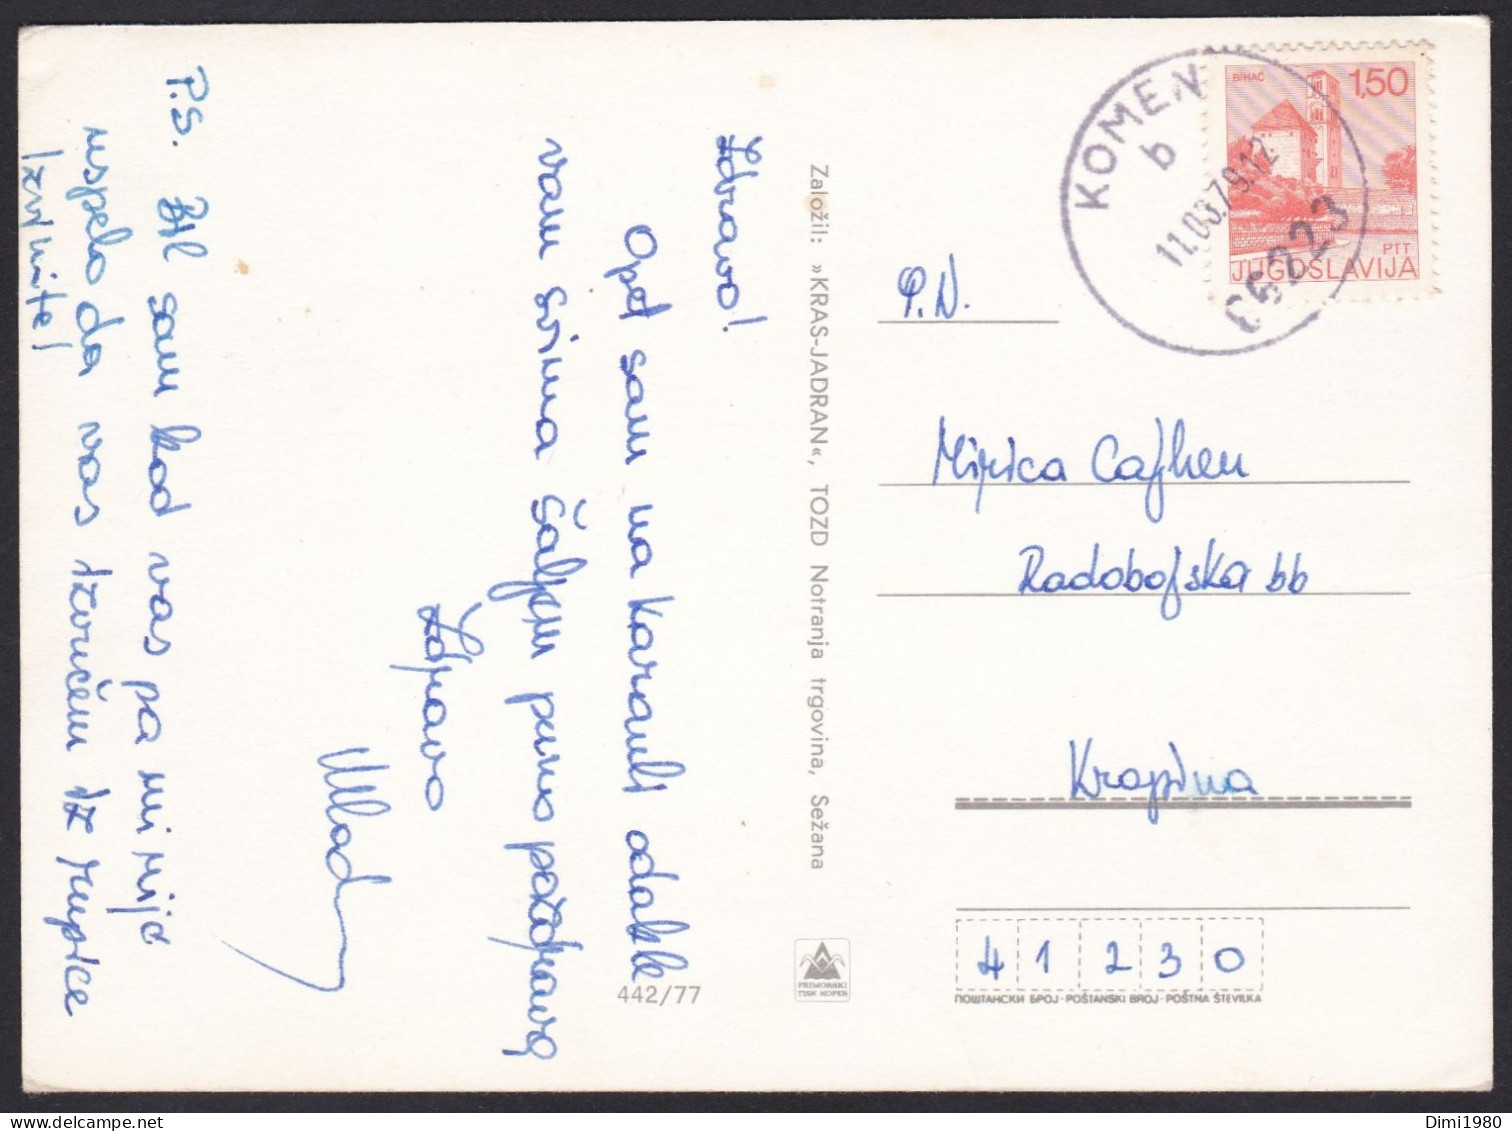 Zdravo!
Opet sam na Karauli odakle
vam svima šaljem puno pozdrava,
Zdravo
Mlad
P.S. Bil sam kod vas pa mi nije
uspelo da vas izvučem iz rupice
Izvinite!
Založil: »KRAS-JADRAN«, TOZD Notranja trgovina, Sežana
442/77
PRIMORSKI
TISK KOPER
KOMEN
b
11.08.79.12
66223
BIHAĆ
1,50
PTT
JUGOSLAVIJA
P.N.
Mirica Cajhen
Radobojska bb
Krapina
41230
ПОШТАНСКИ БРОЈ-POŠTANSKI BROJ-POŠTNA ŠTEVILKA
Dimi1980